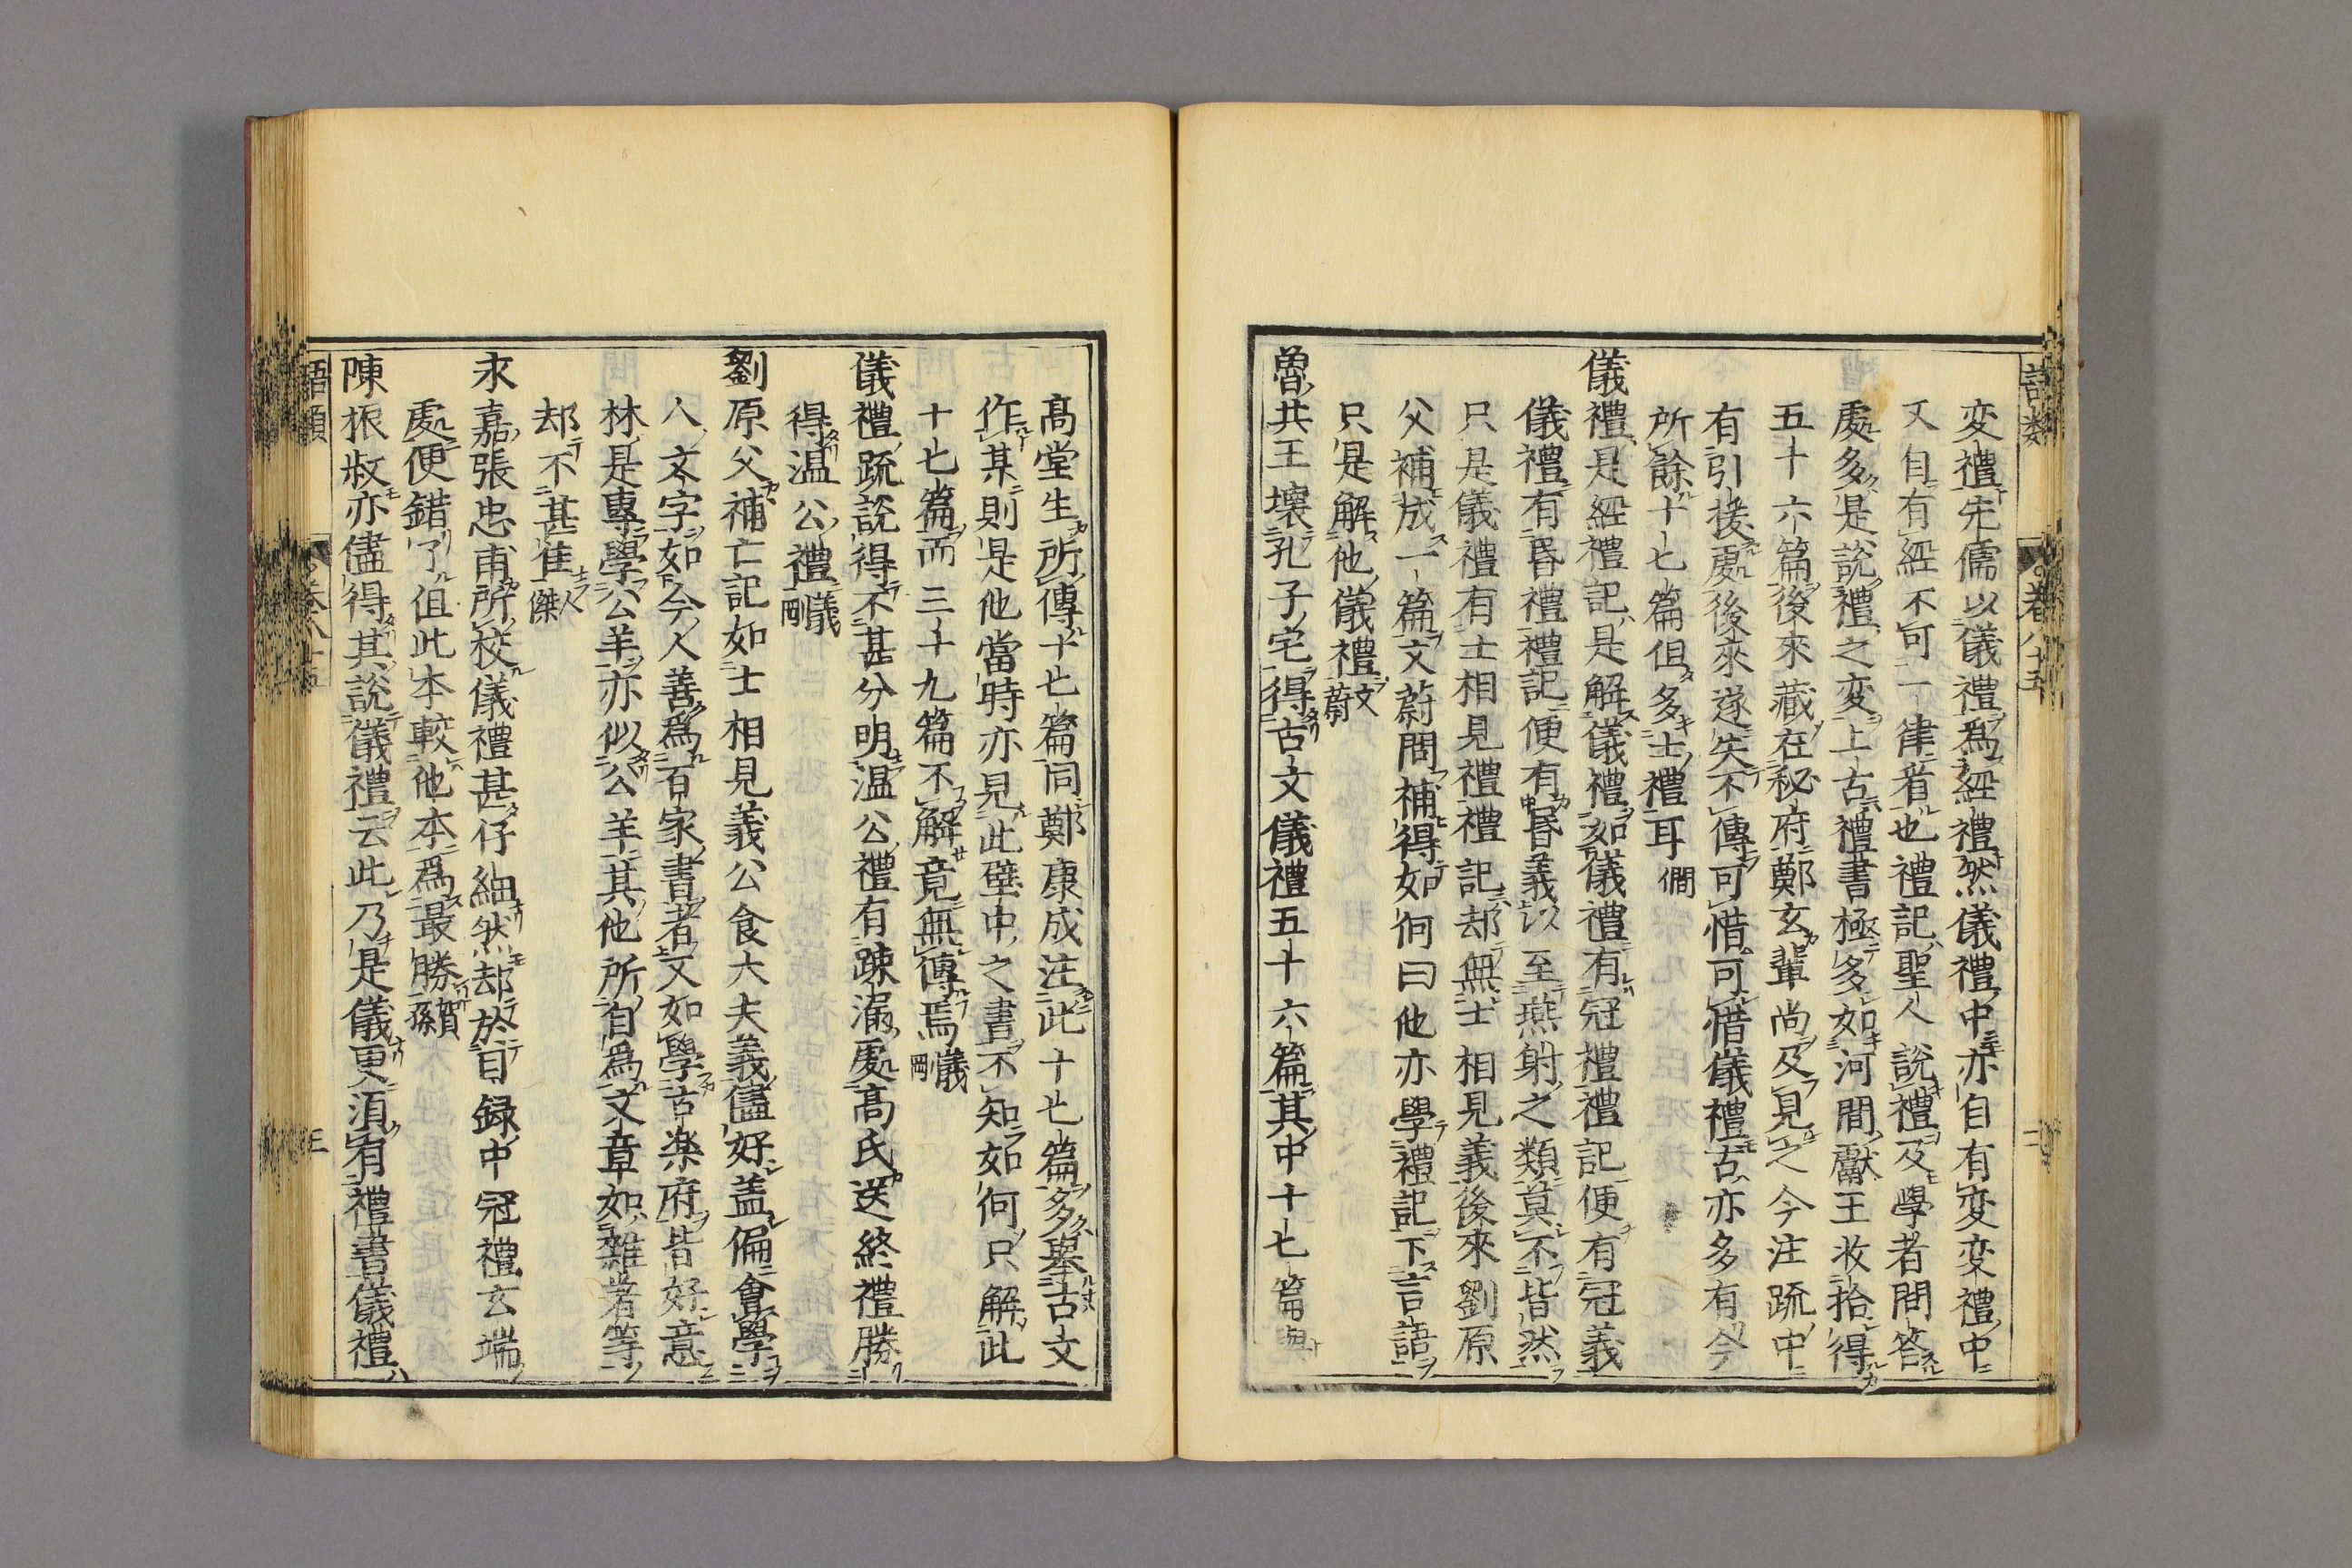 語類 卷八十五 二
変禮先儒以儀禮爲經禮然儀禮中亦自有変変禮中
又自有經不可一律看也禮記聖人說禮及學者問答
處多是說禮之変上古禮書極多如河間獻王收拾得
五十六篇後來藏在秘府鄭玄輩尚及見之今注疏中
有引接處後來遂失不傳可惜可惜儀禮古亦多有今
所餘十七篇但多士禮耳僩
儀禮是經禮記是解儀禮如儀禮有冠禮禮記便有冠義
儀禮有昏禮禮記便有昏義以至燕射之類莫不皆然
只是儀禮有士相見禮禮記却無士相見義後來劉原
父補成一篇文蔚問補得如何曰他亦學禮記下言語
只是解他儀禮文蔚
魯共王壞孔子宅得古文儀禮五十六篇其中十七篇與
高堂生所傳十七篇同鄭康成注此十七篇多舉古文
作某則是他當時亦見此壁中之書不知如何只解此
十七篇而三十九篇不解竟無傳焉義剛
儀禮疏說得不甚分明温公禮有疎漏處高氏送終禮勝
得温公禮義剛
劉原父補亡記如士相見義公食大夫義儘好盖偏會學
人文字如今人善爲百家書者又如學古楽府皆好意
林是專學公羊亦似公羊其他所自爲文章如雜著等
却不甚佳人傑
永嘉張忠甫所校儀禮甚仔細然却於目録中冠禮玄端
處便錯了但此本較他本爲最勝賀孫
陳振叔亦儘得其說儀禮云此乃是儀更須有禮書儀禮
語類 卷八十五 三